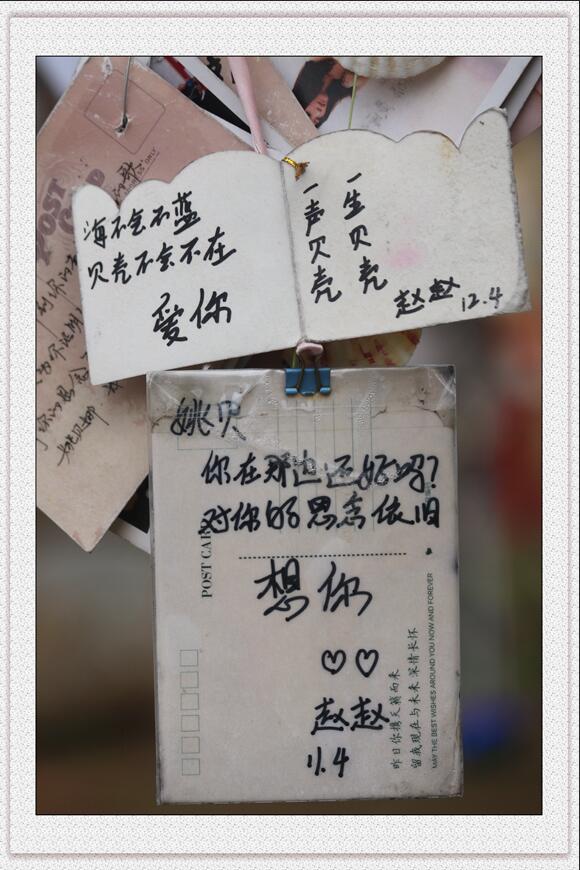 海不会不蓝
贝壳不会不在
爱你
一生贝壳
一声贝壳
赵赵 12.4
姚贝
你在那边还好吗?
对你的思念依旧
POST CARD
想你
♡♡
赵赵
11.4
昨日你携天籁而来
留我现在与未来深情长怀
MAY THE BEST WISHES AROUND YOU NOW AND FOREVER
POST
姚贝娜